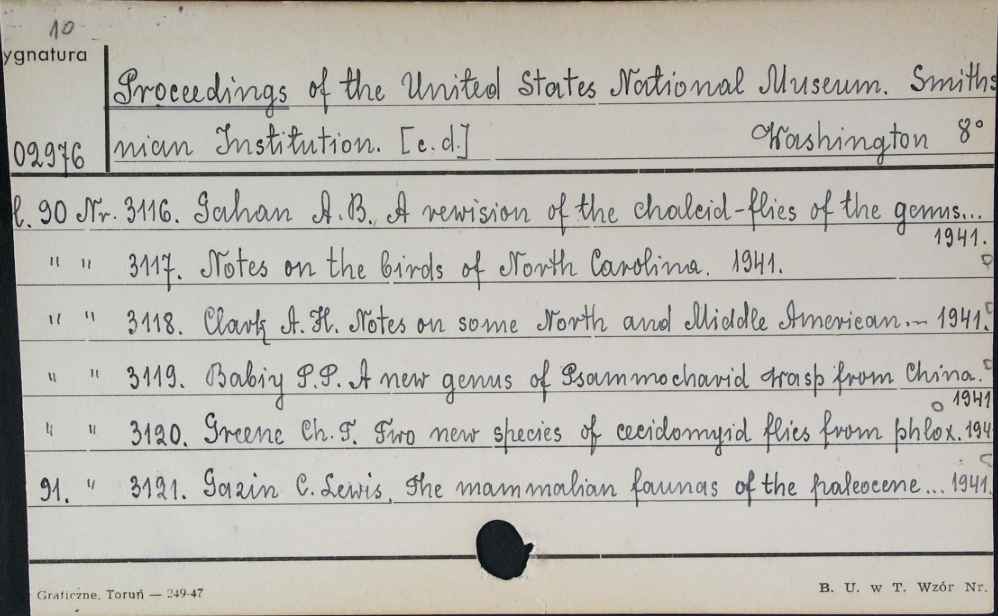 10
ygnatura
Proceedings of the United States National Museum. Smiths
02976 nian Institution. [c.d.] Washington 8°
t. 90 Nr. 3116. Gahan A.B. A rewision of the chalcid-flies of the genus... 1941.
" " 3117. Notes on the birds of North Carolina. 1941.
" " 3118. Clark A.H. Notes on some North and Middle American... 1941.
" " 3119. Babiy P.P. A new genus of Psammocharid wasp from China. 1941
" " 3120. Greene Ch.T. Two new species of cecidomyid flies from phlox. 194
91. " 3121. Gazin C. Lewis. The mammalian faunas of the paleocene... 1941.
Graficzne, Toruń — 249-47 B. U. w T. Wzór Nr.